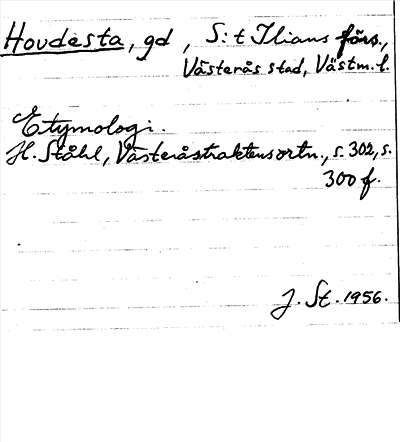 Hovdesta, gd, S:t Ilians förs.,
Västerås stad, Västm. l.
Etymologi.
H. Ståhl, Västeråstraktens ortn., s. 302, s.
300 f.
J. St. 1956.